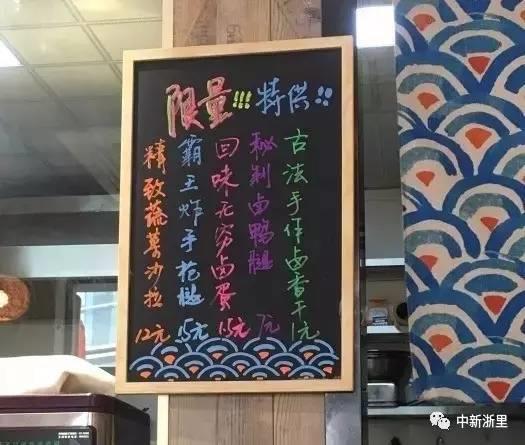 限量!!! 特供!!
古法手作卤香干 1元
秘制卤鸭腿 7元
回味无穷卤蛋 1.5元
霸王炸手枪腿 15元
精致蔬菜沙拉 12元
中新浙里